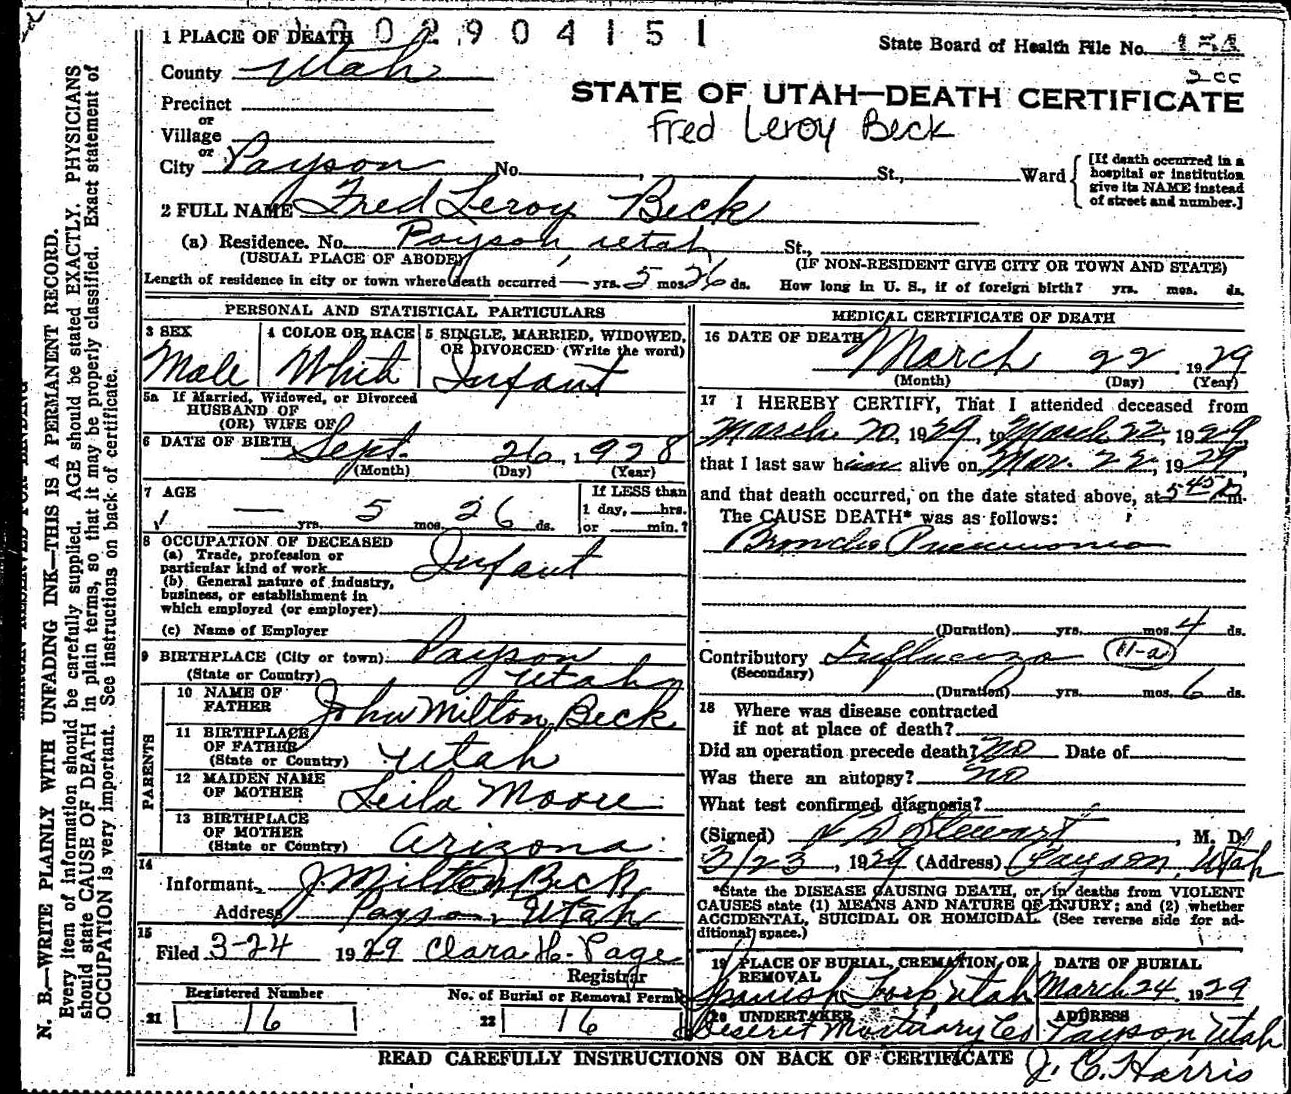 1 PLACE OF DEATH 002904151
State Board of Health File No.
County Utah
2 cc
STATE OF UTAH—DEATH CERTIFICATE
Precinct
or
Fred Leroy Beck
Village
or
City Payson No. , St., Ward
[If death occurred in a hospital or institution give its NAME instead of street and number.]
2 FULL NAME Fred Leroy Beck
(a) Residence. No. Payson, Utah St.,
(USUAL PLACE OF ABODE) (IF NON-RESIDENT GIVE CITY OR TOWN AND STATE)
Length of residence in city or town where death occurred — yrs. 5 mos. 26 ds. How long in U. S., if of foreign birth? yrs. mos. ds.
PERSONAL AND STATISTICAL PARTICULARS
3 SEX
Male
4 COLOR OR RACE
White
5 SINGLE, MARRIED, WIDOWED, OR DIVORCED (Write the word)
Infant
5a If Married, Widowed, or Divorced
HUSBAND OF
(OR) WIFE OF
6 DATE OF BIRTH Sept. 26, 1928
(Month) (Day) (Year)
7 AGE
— yrs. 5 mos. 26 ds.
If LESS than
1 day, hrs.
or min.?
8 OCCUPATION OF DECEASED
(a) Trade, profession or
particular kind of work Infant
(b) General nature of industry,
business, or establishment in
which employed (or employer)
(c) Name of Employer
9 BIRTHPLACE (City or town) Payson
(State or Country) Utah
PARENTS
10 NAME OF
FATHER John Milton Beck
11 BIRTHPLACE
OF FATHER
(State or Country) Utah
12 MAIDEN NAME
OF MOTHER Leila Moore
13 BIRTHPLACE
OF MOTHER
(State or Country) Arizona
14
Informant J Milton Beck
Address Payson, Utah
15
Filed 3-24 1929 Clara H. Page
Registrar
Registered Number
21 16
No. of Burial or Removal Permit
22 16
MEDICAL CERTIFICATE OF DEATH
16 DATE OF DEATH March 22, 1929
(Month) (Day) (Year)
17 I HEREBY CERTIFY, That I attended deceased from
March 20, 1929, to March 22, 1929,
that I last saw him alive on Mar. 22, 1929,
and that death occurred, on the date stated above, at 5:45 P m.
The CAUSE DEATH* was as follows:
Broncho Pneumonia
(Duration) yrs. mos. 4 ds.
Contributory Influenza 11-a
(Secondary)
(Duration) yrs. mos. 6 ds.
18 Where was disease contracted
if not at place of death?
Did an operation precede death? No Date of
Was there an autopsy? no
What test confirmed diagnosis?
(Signed) Stewart, M. D.
3/23, 1929 (Address) Payson, Utah
*State the DISEASE CAUSING DEATH, or, in deaths from VIOLENT
CAUSES state (1) MEANS AND NATURE OF INJURY; and (2) whether
ACCIDENTAL, SUICIDAL OR HOMICIDAL. (See reverse side for ad-
ditional space.)
19 PLACE OF BURIAL, CREMATION, OR
REMOVAL
Spanish Fork Utah
DATE OF BURIAL
March 24 1929
20 UNDERTAKER
Deseret Mortuary Co
ADDRESS
Payson, Utah
READ CAREFULLY INSTRUCTIONS ON BACK OF CERTIFICATE
J. C. Harris
N. B.—WRITE PLAINLY WITH UNFADING INK—THIS IS A PERMANENT RECORD.
Every item of information should be carefully supplied. AGE should be stated EXACTLY. PHYSICIANS
should state CAUSE OF DEATH in plain terms, so that it may be properly classified. Exact statement of
OCCUPATION is very important. See instructions on back of certificate.